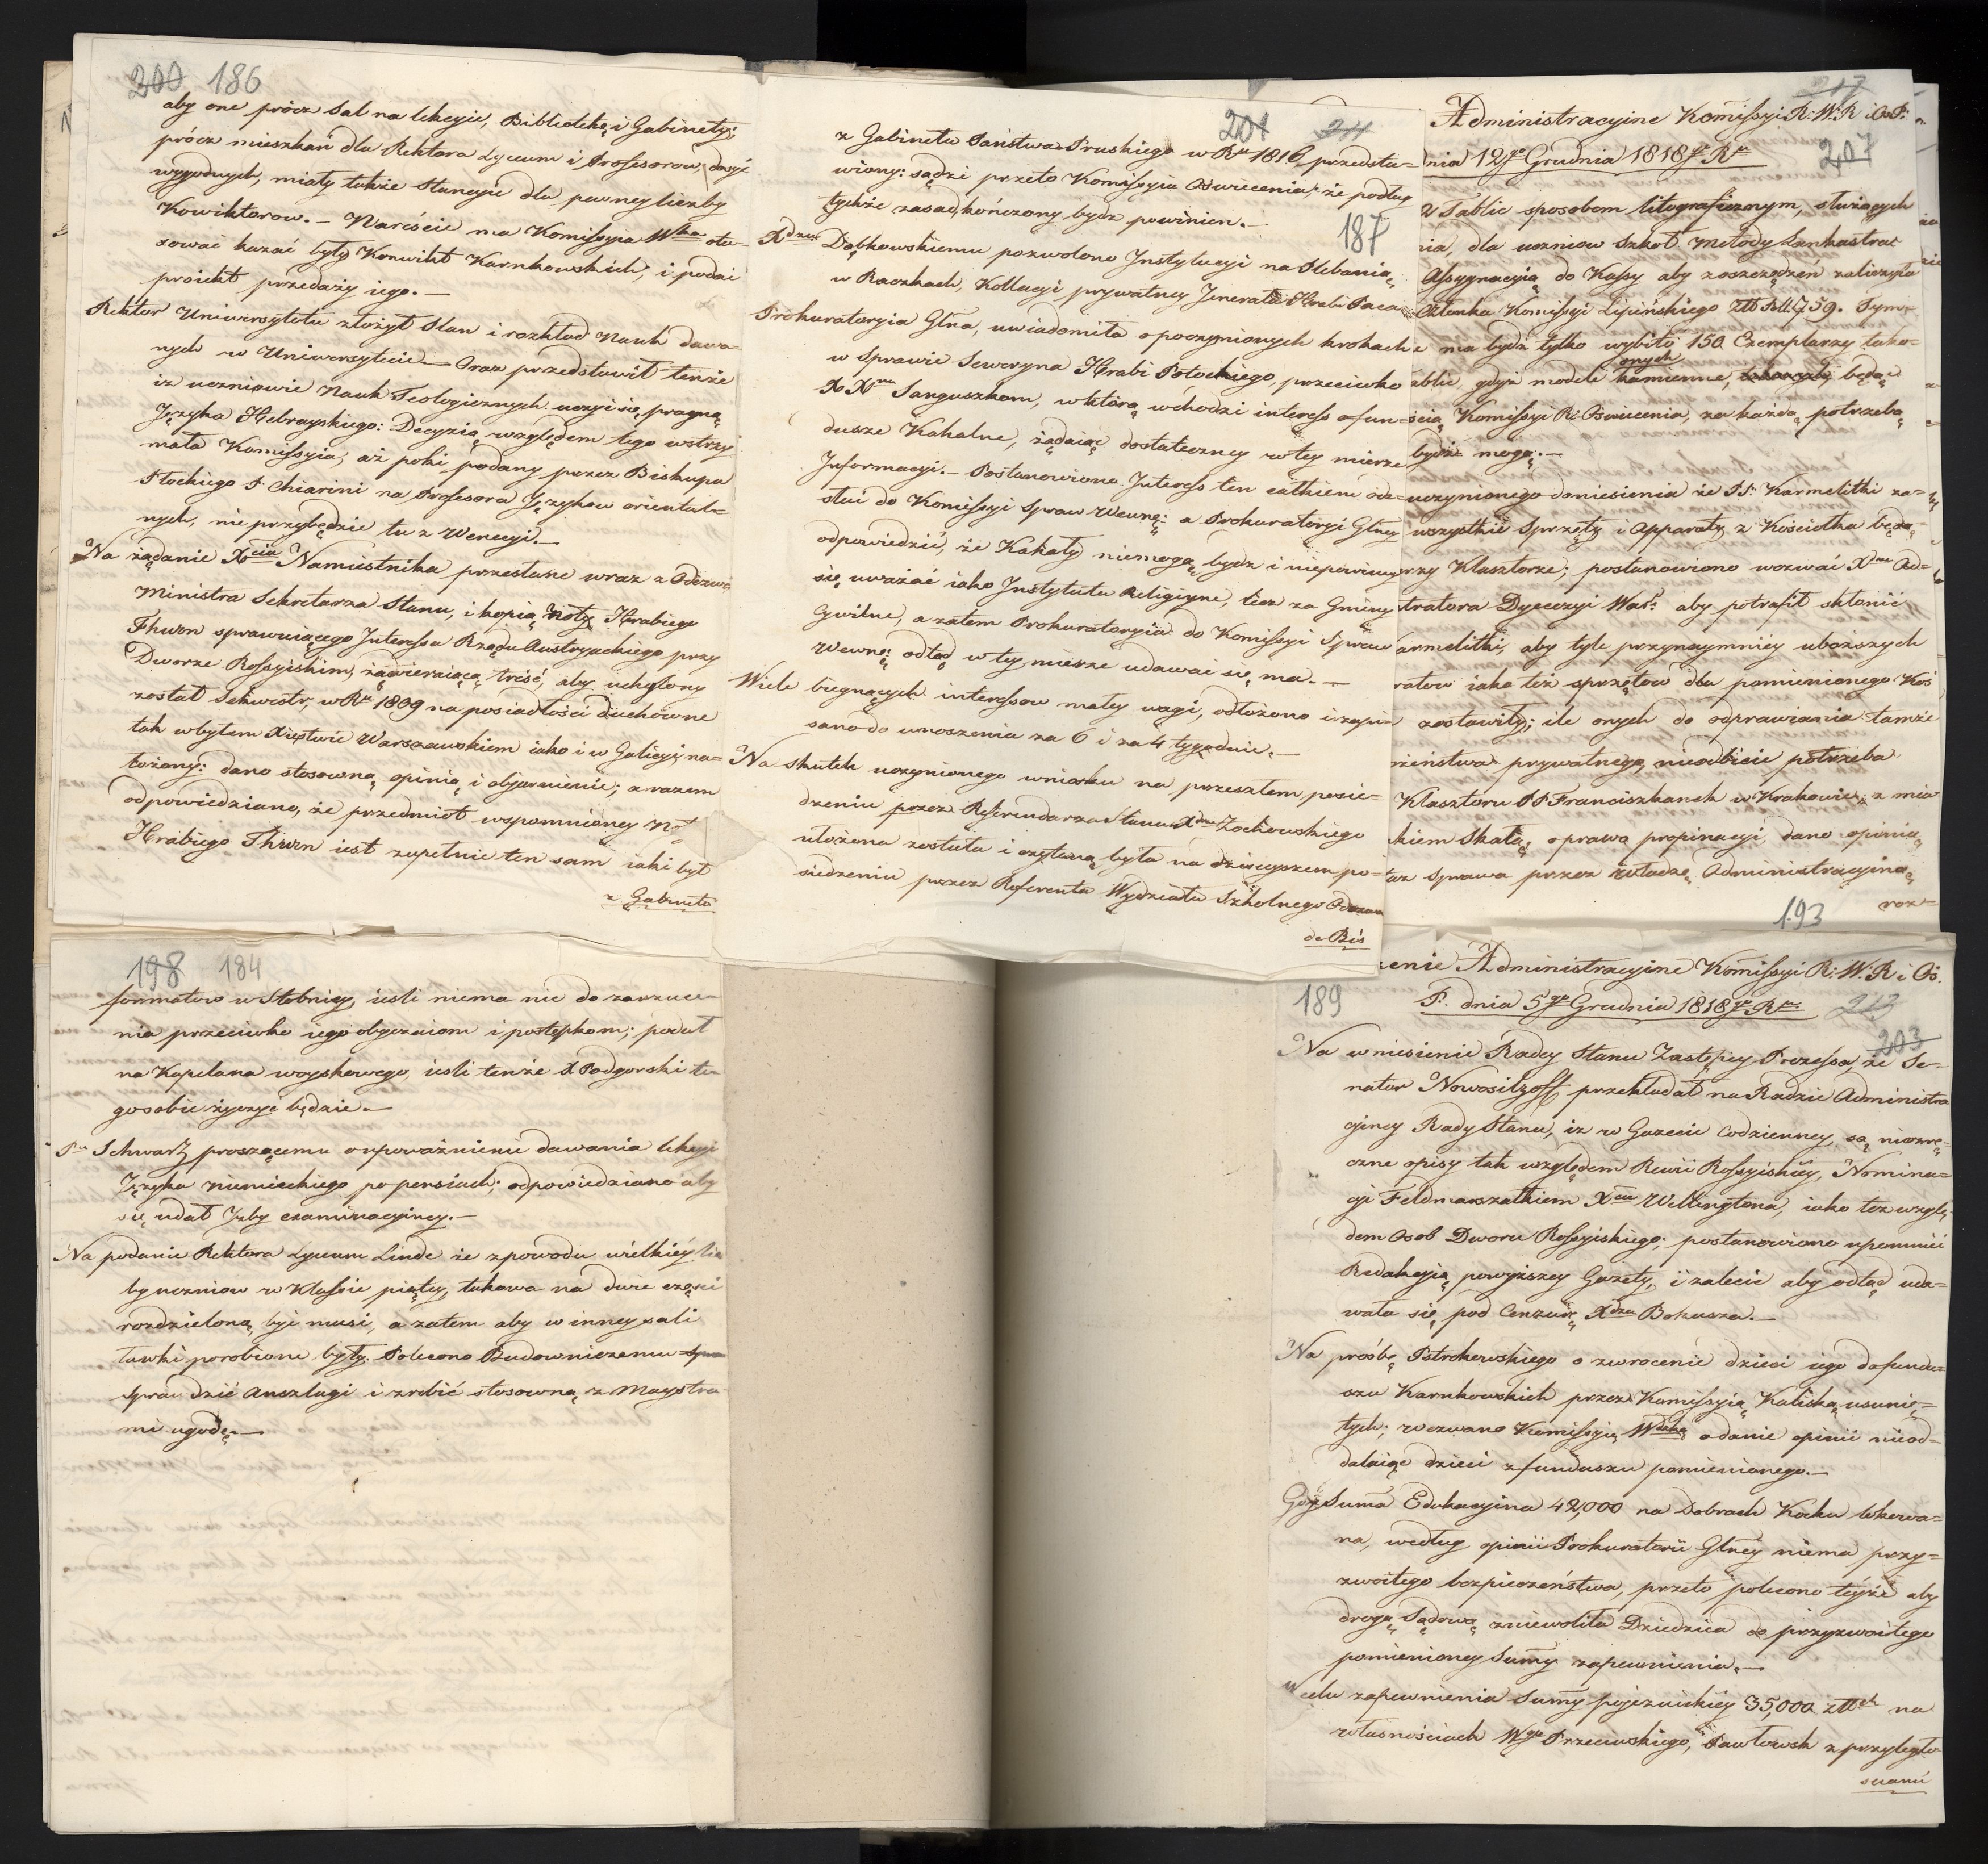 200 186
aby one prócz Sal na lekcyie, Bibliotekę i Gabinety;
prócz mieszkań dla Rektora Lyceum i Professorow, dosyć
wygodnych, miały także Stancyie dla pewney liczby
Kowiktorow. – Nareście ma Komissyia Wka otu-
xować kazać były Konwikt Karnkowskich, i podać
proiekt przedaży iego. –
Rektor Uniwersytetu złożył Stan i rozkład Nauk dawa-
nych w Uniwersytecie. – Oraz przedstawił tenże
iż uczniowie Nauk Teologicznych uczyć się pragną
Języka Hebrayskiego: Decyzią względem tego wstrzy-
mała Komissyia, aż poki podany przez Biskupa
Płockiego P. Chiarini na Professora Języków oriental-
nych, nie przybędzie tu z Wenecyi. –
Na żądanie Xcia Namiestnika przesłane wraz z Odezwą
Ministra Sekretarza Stanu, i kopią Noty Hrabiego
Thurn sprawuiącego Interessa Rządu Austryackiego przy
Dworze Rossyiskim, zawieraiącą treść, aby uchylony
został Sekwestr, w Rku 1809 na posiadłości Duchowne
tak w byłem Xięstwie Warszawskiem iako i w Galicyi na-
łożony: dano stosowną opinią i obiaśnienie; a razem
odpowiedziano, że przedmiot wspomnioney Not
Hrabiego Thurn iest zupełnie ten sam iaki był
z Gabinetu
201 211
z Gabinetu Państwa Pruskiego w Rku 1816 przedsta-
wiony: sądzi przeto Komissyia Oświecenia, że podług
tychże zasad kończony bydź powinien. –
187
Xdzu Dąbkowskiemu pozwolono Instytucyi na Plebanią
w Raczkach, Kollacyi prywatney Jenerała Hrabi Paca
Prokuratoryia Głna, uwiadomiła o poczynionych krokach
w Sprawie Seweryna Hrabi Potockiego, przeciwko
Xo Xm Sanguszkom, w którą wchodzi interess o fun-
dusze Kahalne, żądaiąc dostateczney w tey mierze
Informacyi. – Postanowiono Interess ten całkiem ode-
słać do Komissyi Spraw Wewnę: a Prokuratoryi Głney
odpowiedzić, że Kahały niemogą bydź i niepowinny
się uważać iako Instytuta Religiyne, lecz za Gminy
Cywilne, a zatem Prokuratoryia do Komissyi Spraw
Wewnę: odtąd w tey mierze udawać się ma. –
Wiele biegnących interessow małey wagi, odłożono i zapi-
sano do wnoszenia za 6 i za 4 tygodnie. –
Na skutek uczynionego wniosku na przeszłem posie-
dzeniu przez Referendarza Stanu Xdza Zochowskiego
ułożona została i czytaną była na dzisieyszem po-
siedzeniu przez Referenta Wydziału Szkolnego Odezwa
do Bis
217
Administracyine Komissyi R: W: R i Oś: P:
dnia 12go Grudnia 1818go Rku
207
Tablic sposobem litograficznym, służących
nia, dla uczniow Szkoł Metody Lankastrac
Assygnacyią do Kassy aby zoszczędzeń zaliczyła
Członka Komissyi Lipińskiego Złł Pol. 1,759. Tym-
ma bydź tylko wybito 150 Exemplarzy tako-
onych
ablic, gdyż modele kamienne, będąc
ścią Komissyi R: Oświecenia, za każdą potrzebą
bydź mogą. –
uczynionego doniesienia że PP: Karmelitki za-
wszystkie Sprzęty i Apparaty z Kościołka będą-
rzy Klasztorze; postanowiono wezwać Xdza Ad-
tratora Dyecezyi War: aby potrafił skłonić
armelitki, aby tyle przynaymniey uboższych
ratow iako też sprzętow dla pomienionego Koś
zostawiły; ile onych do odprawiania tamże
żeństwa prywatnego, nieodbicie potrzeba
Klasztoru PP Franciszkanek w Krakowie, z mia
kiem Skałą, o prawo propinacyi, dano opinią
taz Sprawa przez władzę Administracyiną
roz-
198 184
formatow w Stobnicy, iesli niema nic do zarzuce-
nia przeciwko iego obyczaiom i postępkom; podał
na Kapelana woyskowego, iesli tenże X Podgorski te-
go sobie życzyć będzie. –
Pu Schwartz proszącemu o upoważnienie dawania lekcyi
Języka Niemieckiego po pensiach; odpowiedziano aby
się udał Izby examinacyiney. –
Na podanie Rektora Lyceum Linde że z powodu wielkiéy licz
by uczniow w Klassie piątey, takowa na dwie części
rozdzieloną być musi, a zatem aby w inney sali
ławki porobione były. Polecono Budowniczemu
sprawdzić Anszlagi i zrobić stosowną z Maystra-
mi ugodę. –
193
enie Administracyine Komissyi R: W: R i Oś.
189
P. dnia 5go Grudnia 1818go Rku
213
203
Na wniesienie Radcy Stanu Zastępcy Prezessa, że Se-
nator Nowosilzoff przekładał na Radzie Administra
cyiney Rady Stanu, iż w Gazecie Codzienney są niezrę-
czne opisy tak względem Rewii Rossyiskiéy, Nomina-
cyi Feldmarszałkiem Xcia Wellingtona, iako też wzglę-
dem Osob Dworu Rossyiskiego; postanowiono upomnieć
Redakcyią powyższey Gazety, i zalecić aby odtąd uda-
wała się pod Cenzurę Xdza Bohusza. –
Na prośbę Pstrokowskiego o zwrocenie dzieci iego do fundu-
szu Karnkowskich przez Komissyią Kaliską usunię-
tych; wezwano Komissyią Wdzką o danie opinii nieod-
dalaiąc dzieci z funduszu pomienionego. –
Gdy Suma Edukacyina 42,000 na Dobrach Kocku lokowa-
na, według opinii Prokuratorii Głney niema przy-
zwoitego bezpieczeństwa, przeto polecono teyże aby
drogą Sądową zniewoliła Dziedzica do przyzwoitego
pomienioney Sumy zapewnienia. –
W celu zapewnienia Sumy pojezuickiéy 35,000 złłch na
własnościach Wgo Przeciuskiego, Pawłowsk z przyległo-
sciami